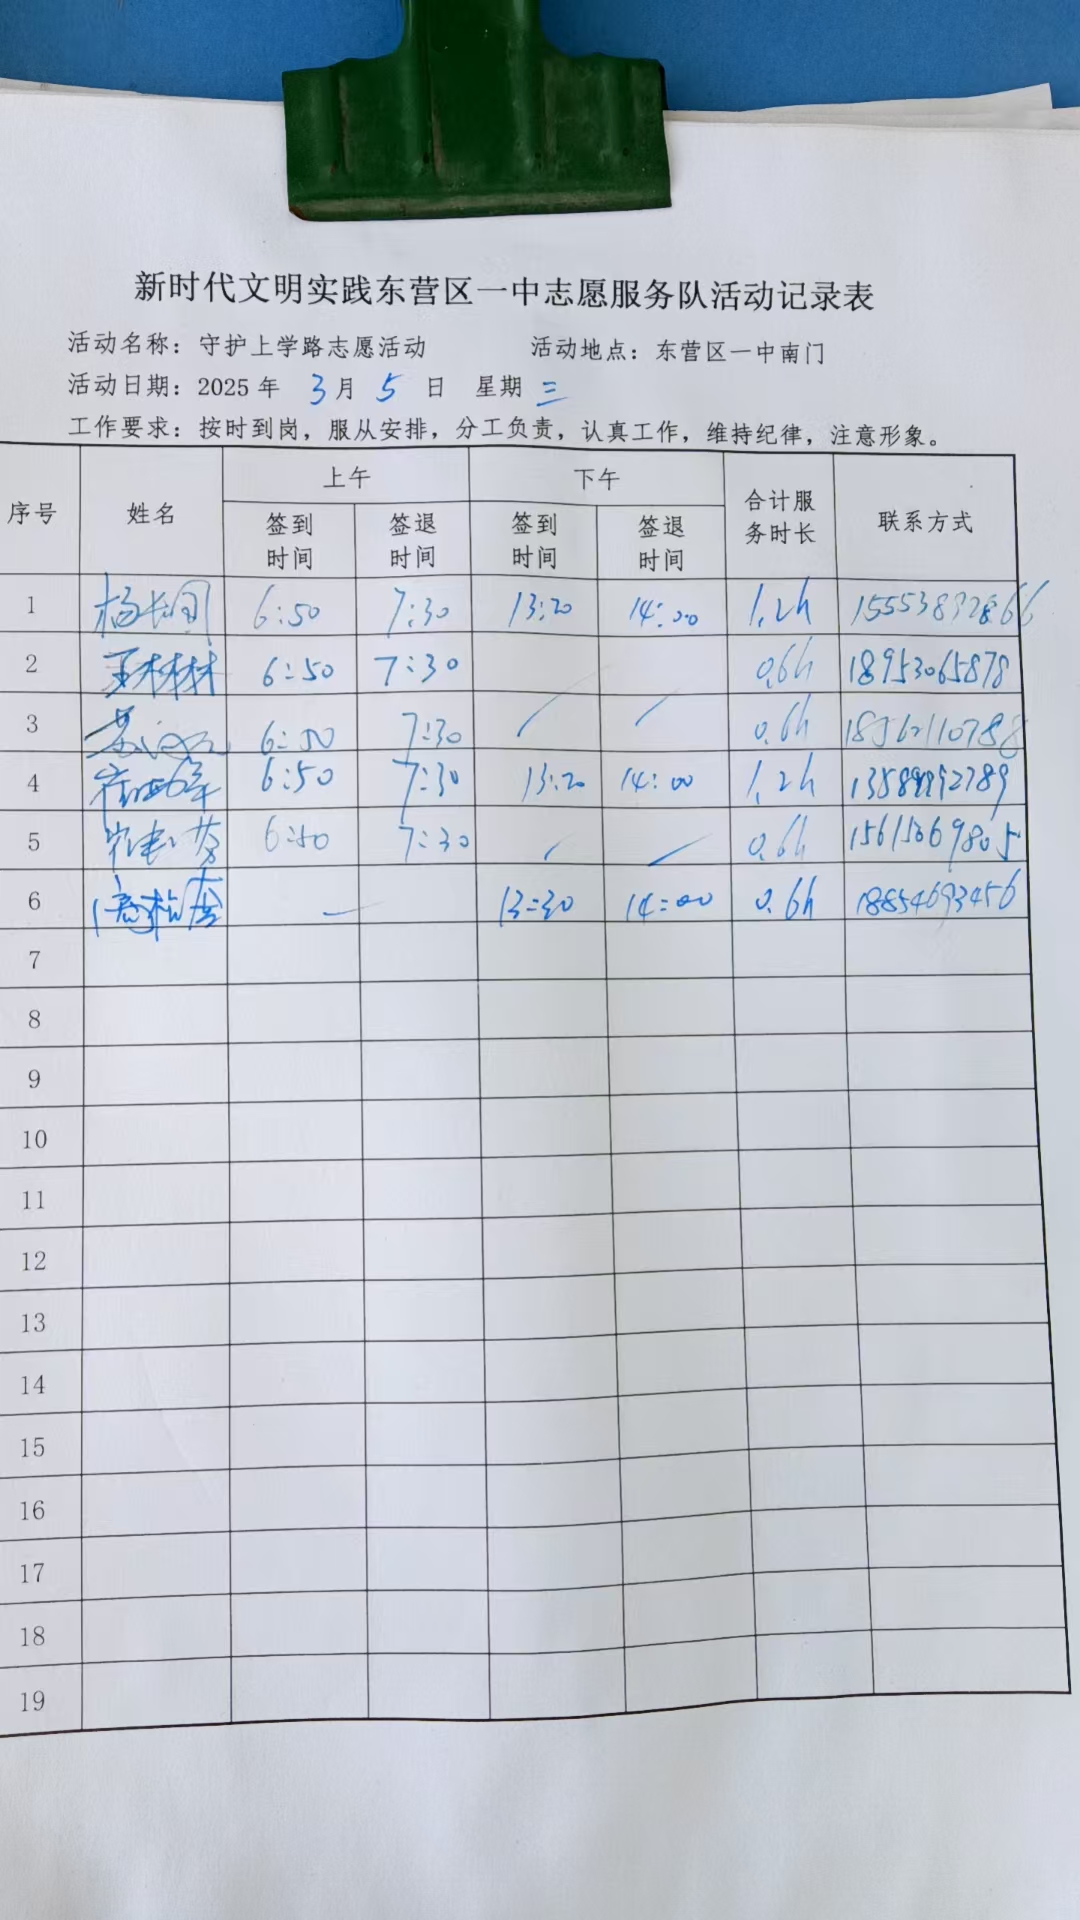 新时代文明实践东营区一中志愿服务队活动记录表
活动名称：守护上学路志愿活动 活动地点：东营区一中南门
活动日期：2025年 3月 5日 星期三
工作要求：按时到岗，服从安排，分工负责，认真工作，维持纪律，注意形象。
序号 姓名 上午 下午 合计服务时长 联系方式
签到时间 签退时间 签到时间 签退时间
1 6:50 7:30 13:20 14:00 1.2h 15553892866
2 王林林 6:50 7:30 0.6h 18953065878
3 6:50 7:30 0.6h 18562110788
4 6:50 7:30 13:20 14:00 1.2h
5 6:50 7:30 0.6h 15615069805
6 — 13:30 14:00 0.6h 18854693456
7
8
9
10
11
12
13
14
15
16
17
18
19